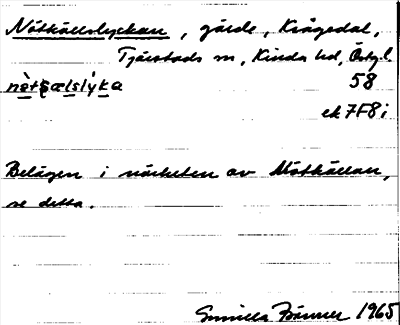 Nötkällslyckan, gärde, Krågedal,
Tjärstads sn, Kinda hd, Östgl.
58
ek 7F8i
Belägen i närheten av Nötkällan,
se detta.
Gunilla 1965